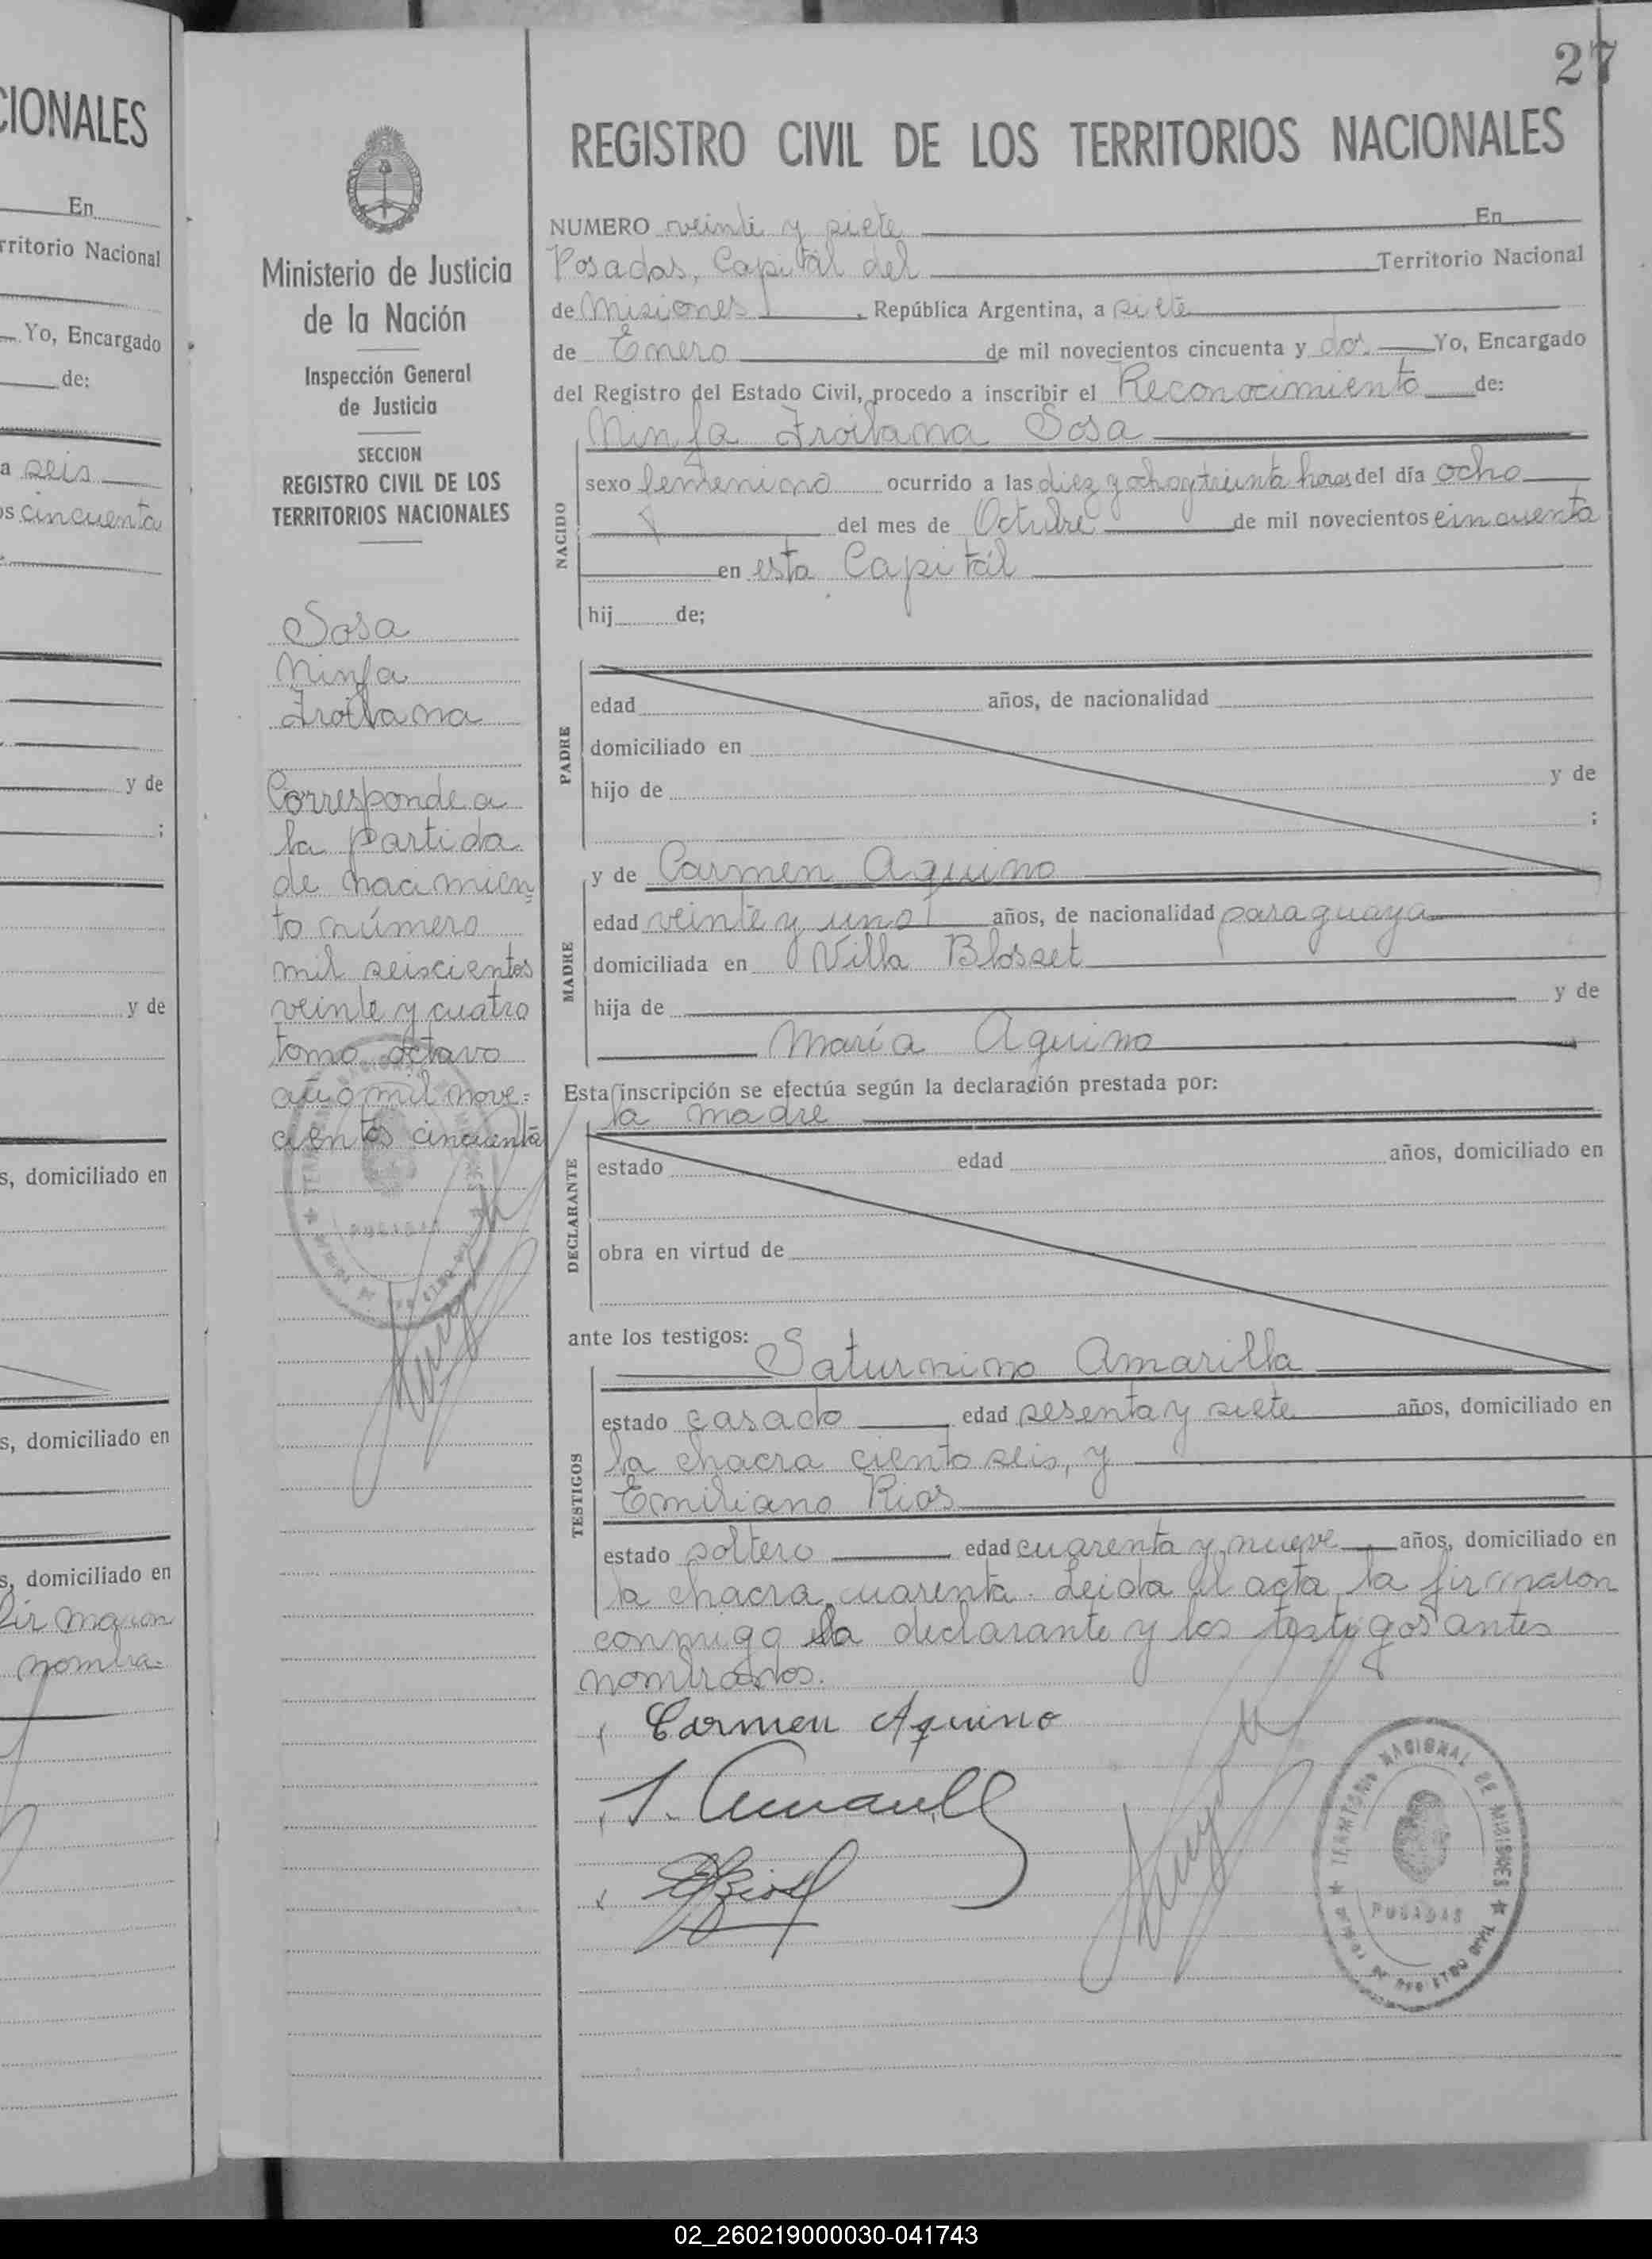 CIONALES
En
rritorio Nacional
Yo, Encargado
de:
a seis
os cincuenta
y de
;
y de
s, domiciliado en
s, domiciliado en
s, domiciliado en
firmaron
nombra=
27
Ministerio de Justicia
de la Nación
Inspección General
de Justicia
SECCION
REGISTRO CIVIL DE LOS
TERRITORIOS NACIONALES
Sosa
Ninfa
Froilana
Corresponde a
la partida
de nacimien=
to número
mil seiscientos
veinte y cuatro
tomo octavo
año mil nove=
cientos cincuenta
POSADAS
REGISTRO CIVIL DE LOS TERRITORIOS NACIONALES
NUMERO veinte y siete En
Posadas, Capitál del Territorio Nacional
de Misiones, República Argentina, a siete
de Enero de mil novecientos cincuenta y dos Yo, Encargado
del Registro del Estado Civil, procedo a inscribir el Reconocimiento de:
Ninfa Froilana Sosa
NACIDO
sexo femenino ocurrido a las diez y ocho y treinta horas del día ocho
del mes de Octubre de mil novecientos cincuenta
en esta Capitál
hij de;
PADRE
edad años, de nacionalidad
domiciliado en
hijo de y de
;
MADRE
y de Carmen Aquino
edad veinte y uno años, de nacionalidad paraguaya
domiciliada en Villa Blosset
hija de y de
María Aquino
Esta inscripción se efectúa según la declaración prestada por:
la madre
DECLARANTE
estado edad años, domiciliado en
obra en virtud de
ante los testigos:
Saturnino Amarilla
TESTIGOS
estado casado edad sesenta y siete años, domiciliado en
la chacra ciento seis, y
Emiliano Rios
estado soltero edad cuarenta y nueve años, domiciliado en
la chacra cuarenta. Leida el acta la firmaron
conmigo la declarante y los testigos antes
nombrados.
Carmen Aquino
S. Amarilla
ERios
TERRITORIO NACIONAL DE MISIONES
POSADAS
02_260219000030-041743